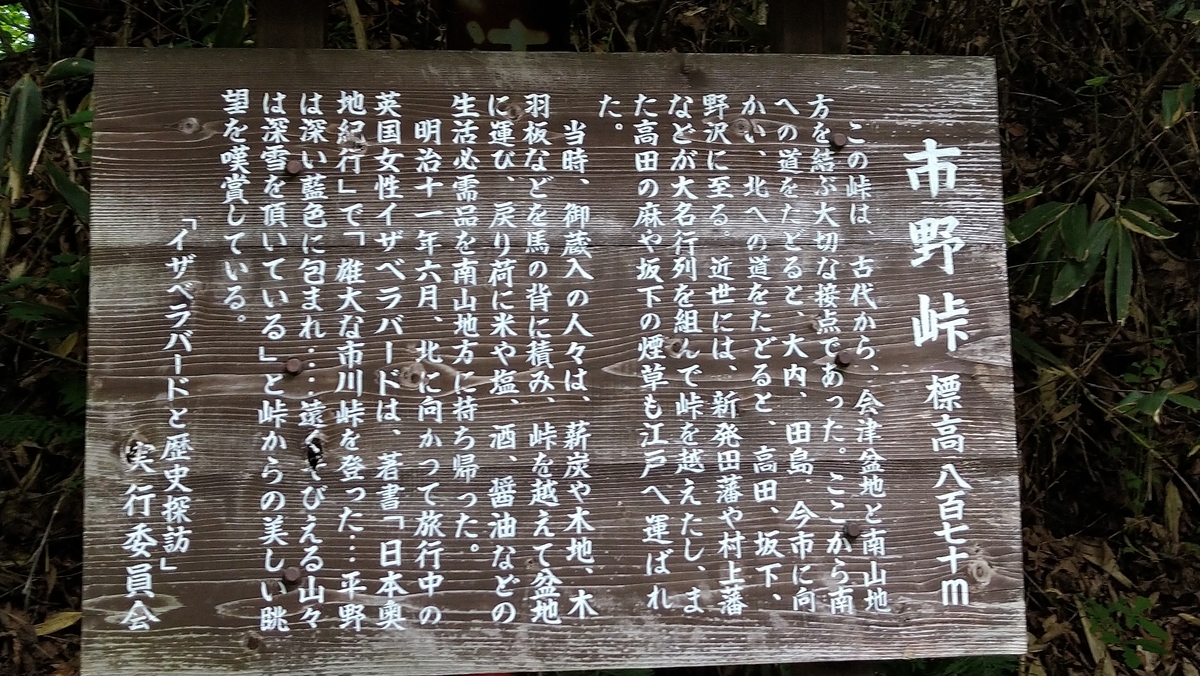 市野峠 標高八百七十m
この峠は、古代から、会津盆地と南山地
方を結ぶ大切な接点であった。ここから南
への道をたどると、大内、田島、今市に向
かい、北への道をたどると、高田、坂下、
野沢に至る。近世には、新発田藩や村上藩
などが大名行列を組んで峠を越えたし、ま
た高田の麻や坂下の煙草も江戸へ運ばれ
た。
当時、御蔵入の人々は、薪炭や木地、木
羽板などを馬の背に積み、峠を越えて盆地
に運び、戻り荷に米や塩、酒、醤油などの
生活必需品を南山地方に持ち帰った。
明治十一年六月、北に向かって旅行中の
英国女性イザベラバードは、著書「日本奥
地紀行」で「雄大な市川峠を登った…平野
は深い藍色に包まれ……遠くそびえる山々
は深雪を頂いている」と峠からの美しい眺
望を嘆賞している。
「イザベラバードと歴史探訪」
実行委員会